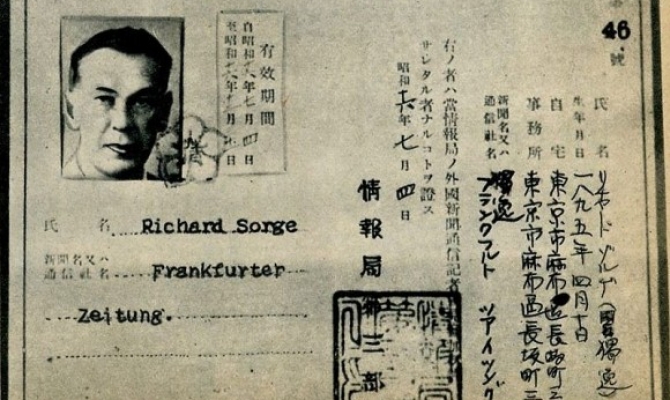 46
號
有效期間
自昭和十六年七月四日
氏名 リヒヤード ゾルゲ (國籍獨逸)
生年月日 一八九五年 四月十日
自宅 東京市麻布區長坂町三
事務所 東京市麻布區長坂町三
新聞名又ハ通信社名 獨逸 フランクフルト ツアイツング
右ノ者ハ當情報局ノ外國新聞通信記者
サレタル者ナルコトヲ證ス
昭和十六年七月四日
情報局第三部
氏名 Richard Sorge
新聞名又ハ通信社名 Frankfurter
Zeitung.